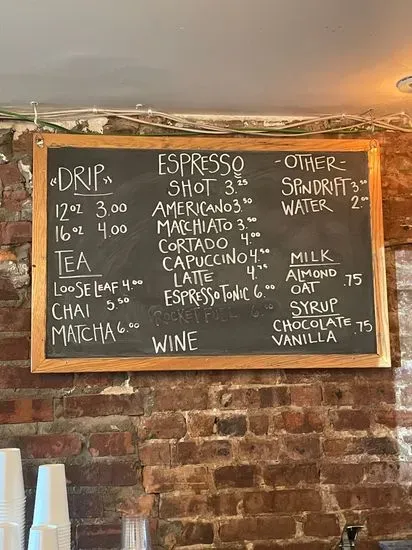 "DRIP"
12oz 3.00
16oz 4.00
TEA
LOOSE LEAF 4.00
CHAI 5.50
MATCHA 6.00
ESPRESSO
SHOT 3.25
AMERICANO 3.50
MACHIATO 3.50
CORTADO 4.00
CAPUCCINO 4.50
LATTE 4.75
ESPRESSO TONIC 6.00
ROCKET FUEL 6.00
WINE
-OTHER-
SPINDRIFT 3.50
WATER 2.00
MILK
ALMOND
OAT .75
SYRUP
CHOCOLATE .75
VANILLA